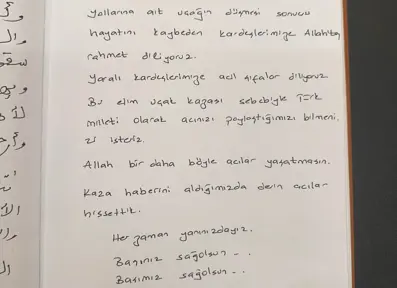 Yollarına ait uçağın düşmesi sonucu
hayatını kaybeden kardeşlerimize Allah'tan
rahmet diliyoruz.
Yaralı kardeşlerimize acil şifalar diliyoruz
Bu elim uçak kazası sebebiyle Türk
milleti olarak acınızı paylaştığımızı bilmeni
zi isteriz.
Allah bir daha böyle acılar yaşatmasın.
Kaza haberini aldığımızda derin acılar
hissettik.
Her zaman yanınızdayız.
Başınız sağolsun - .
Başımız sağolsun - .